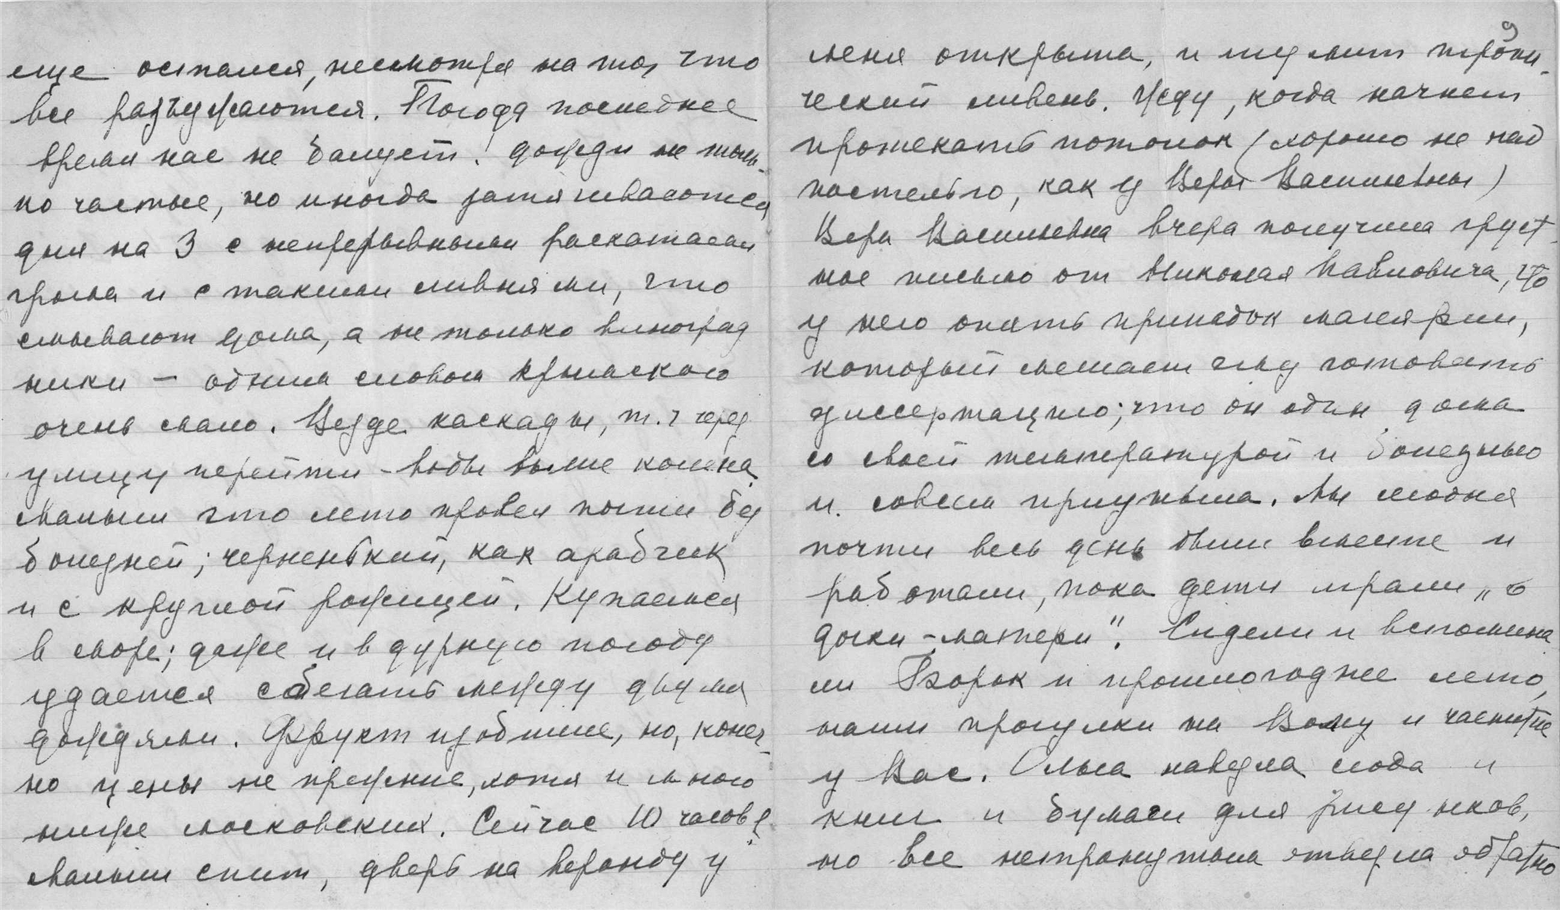 еще остался, несмотря на то, что
все разъезжаются. Погода последнее
время нас не балует: дожди не толь-
ко частые, но иногда затягиваются
дня на 3 с непрерывными раскатами
грома и с такими ливнями, что
смывают дома, а не только виноград
ники – одним словом крымского
очень мало. Везде каскады, т.ч. через
улицу перейти – воды выше колена.
Малыш это лето провел почти без
болезней; черненький, как арабчик
и с круглой рожицей. Купаемся
в море; даже и в дурную погоду
удается сбегать между двумя
дождями. Фрукт изобилие, но, конеч-
но цены не прежние, хотя и много
ниже московских. Сейчас 10 часов,
малыш спит, дверь на веранду у
9
меня открыта, и шумит тропи-
ческий ливень. Жду, когда начнет
протекать потолок (хорошо не над
постелью, как у Веры Васильевны)
Вера Васильевна вчера получила груст-
ное письмо от Николая Павловича, что
у него опять припадок малярии,
который мешает ему готовить
диссертацию; что он один дома
со своей температурой и болезнью
и совсем приуныла. Мы сегодня
почти весь день были вместе и
работали, пока дети играли „в
дочки-матери“. Сидели и вспомина
ли Борок и прошлогоднее лето,
наши прогулки на Волгу и чаепитие
у Вас. Ольга навезла сюда и
книг и бумаги для рисунков,
но все нетронутым отвезла обратно